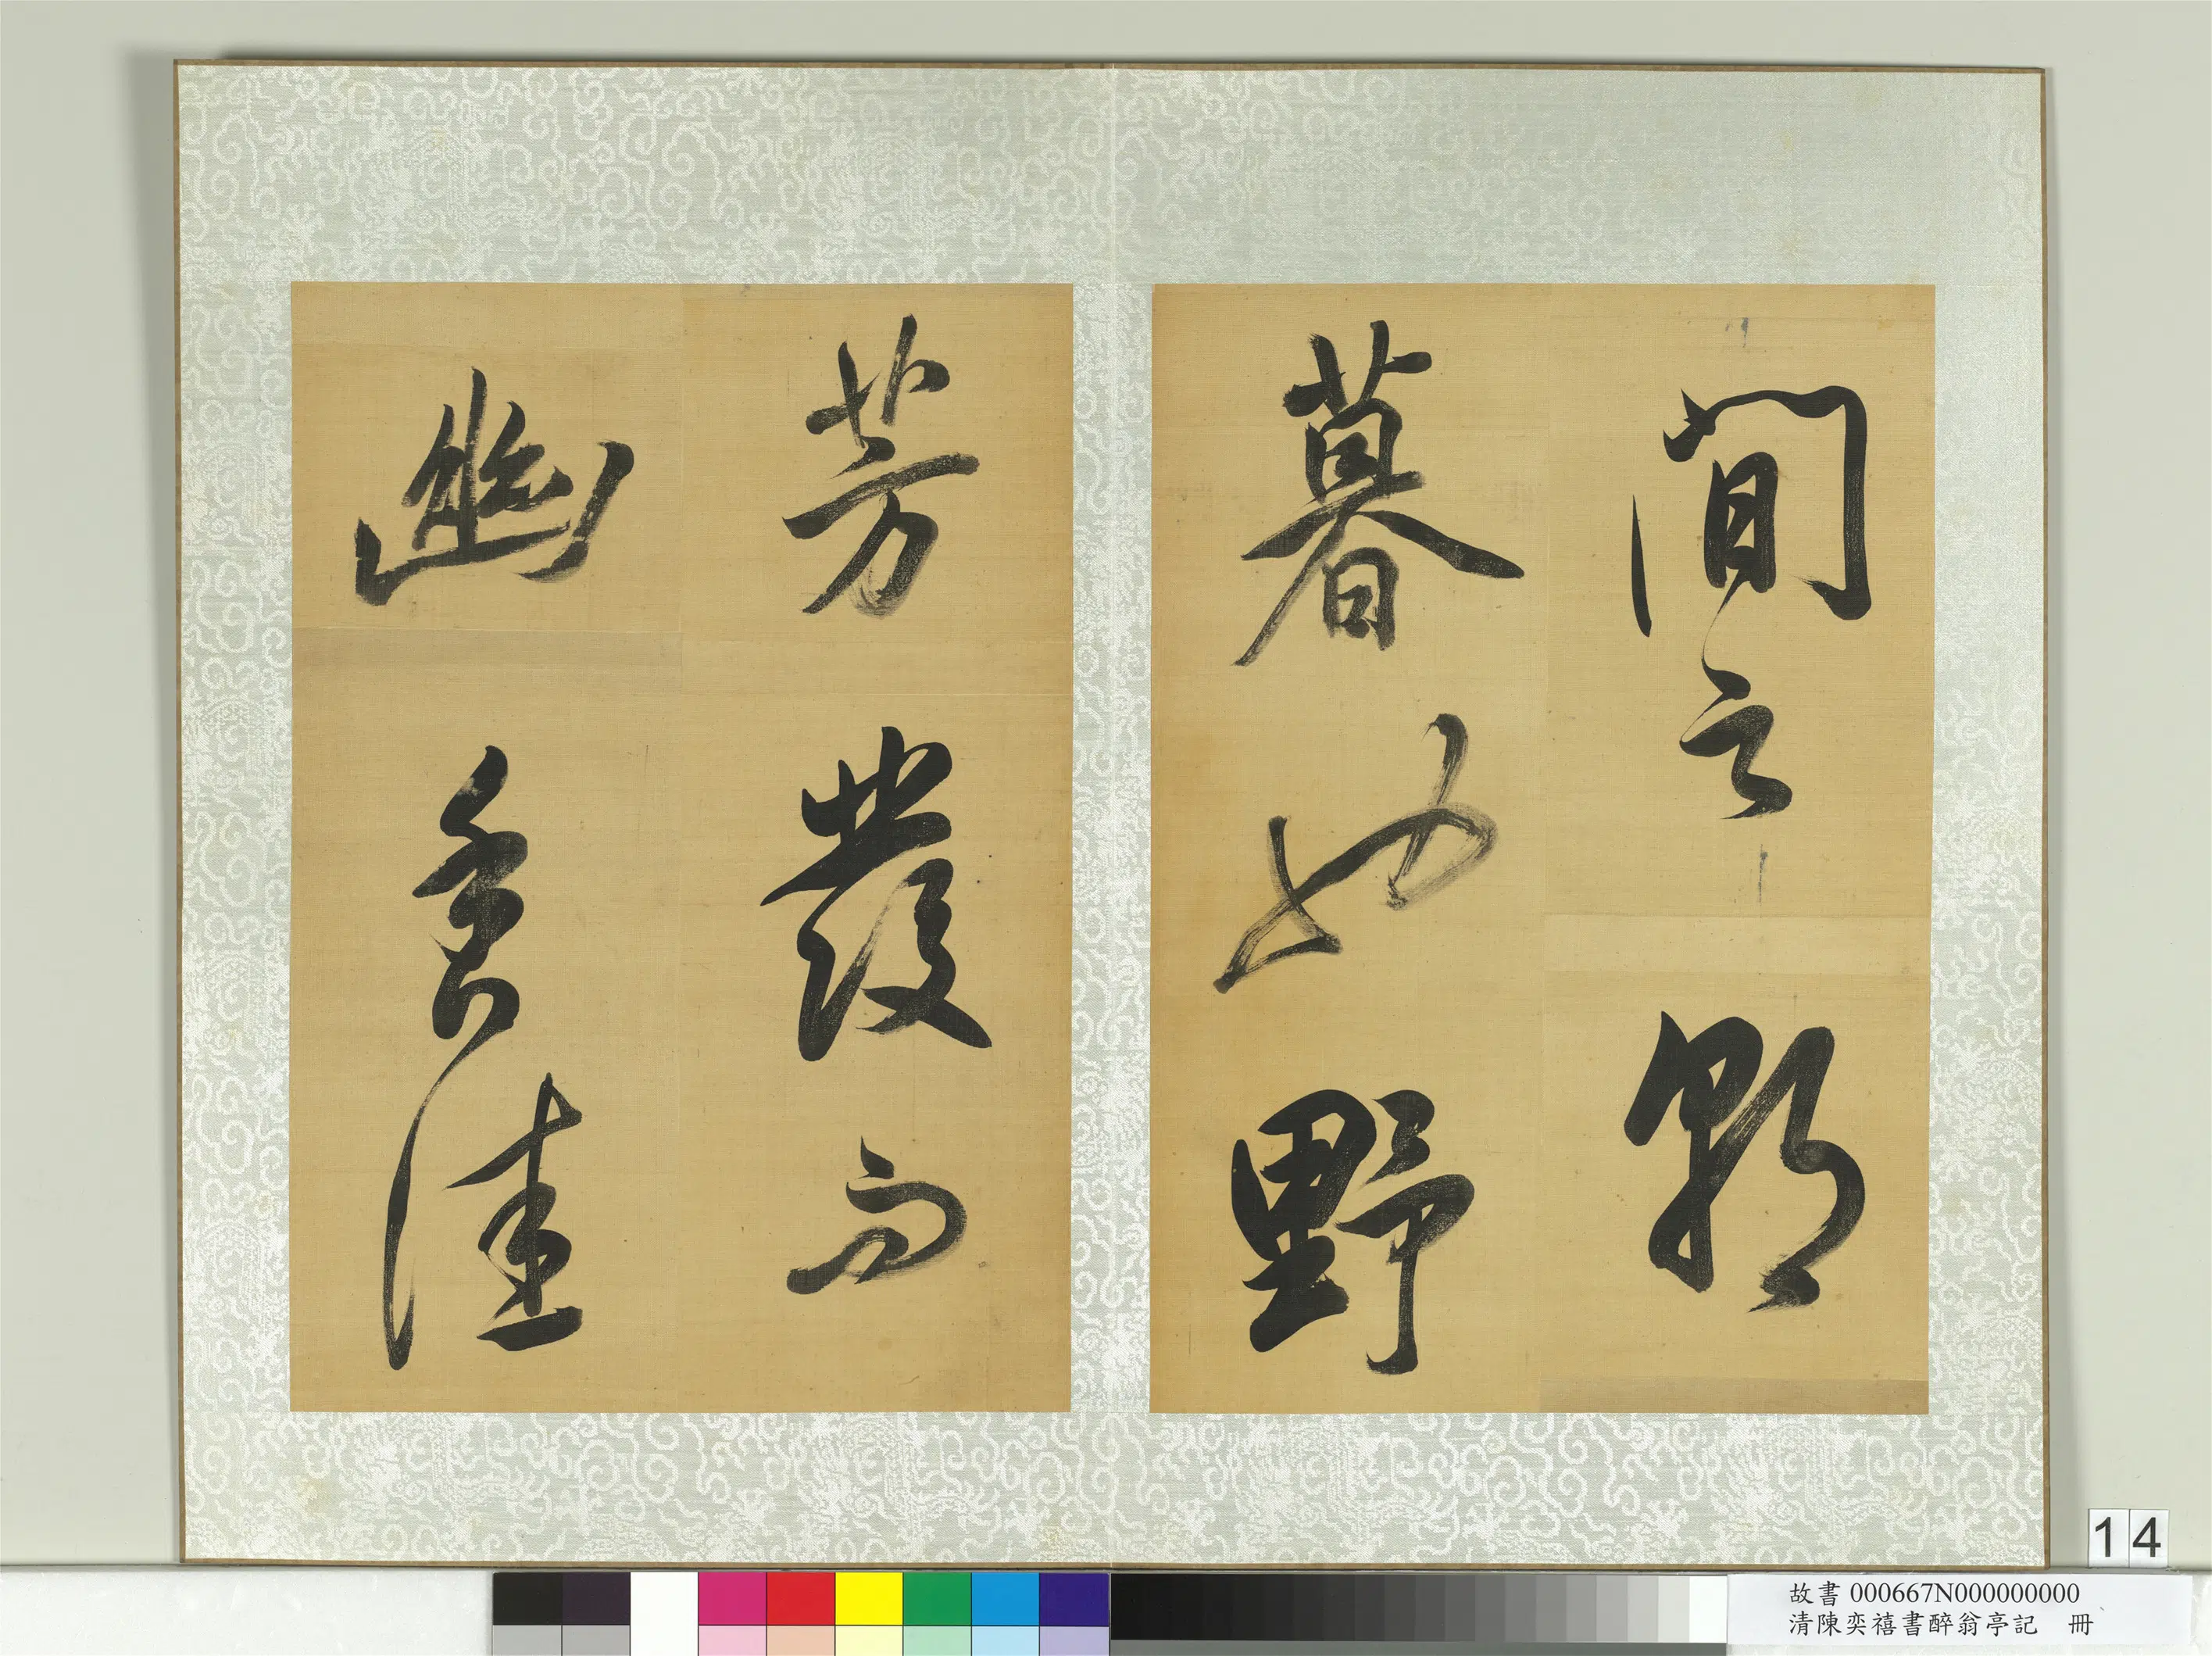 間之朝
暮也野
芳發而
幽香佳
14
故書 000667N000000000
清陳奕禧書醉翁亭記 冊